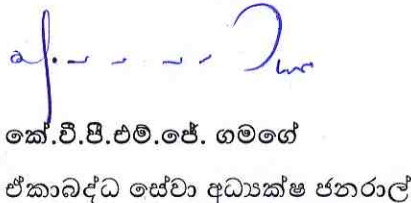 කේ.වී.පී.එම්.ජේ. ගමගේ
ඒකාබද්ධ සේවා අධ්‍යක්ෂ ජනරාල්